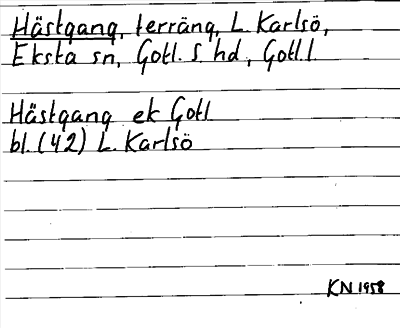 Hästgang, terräng, L. Karlsö,
Eksta sn, Gotl. S. hd, Gotl. l
Hästgang ek Gotl
bl. (42) L. Karlsö
KN 1958